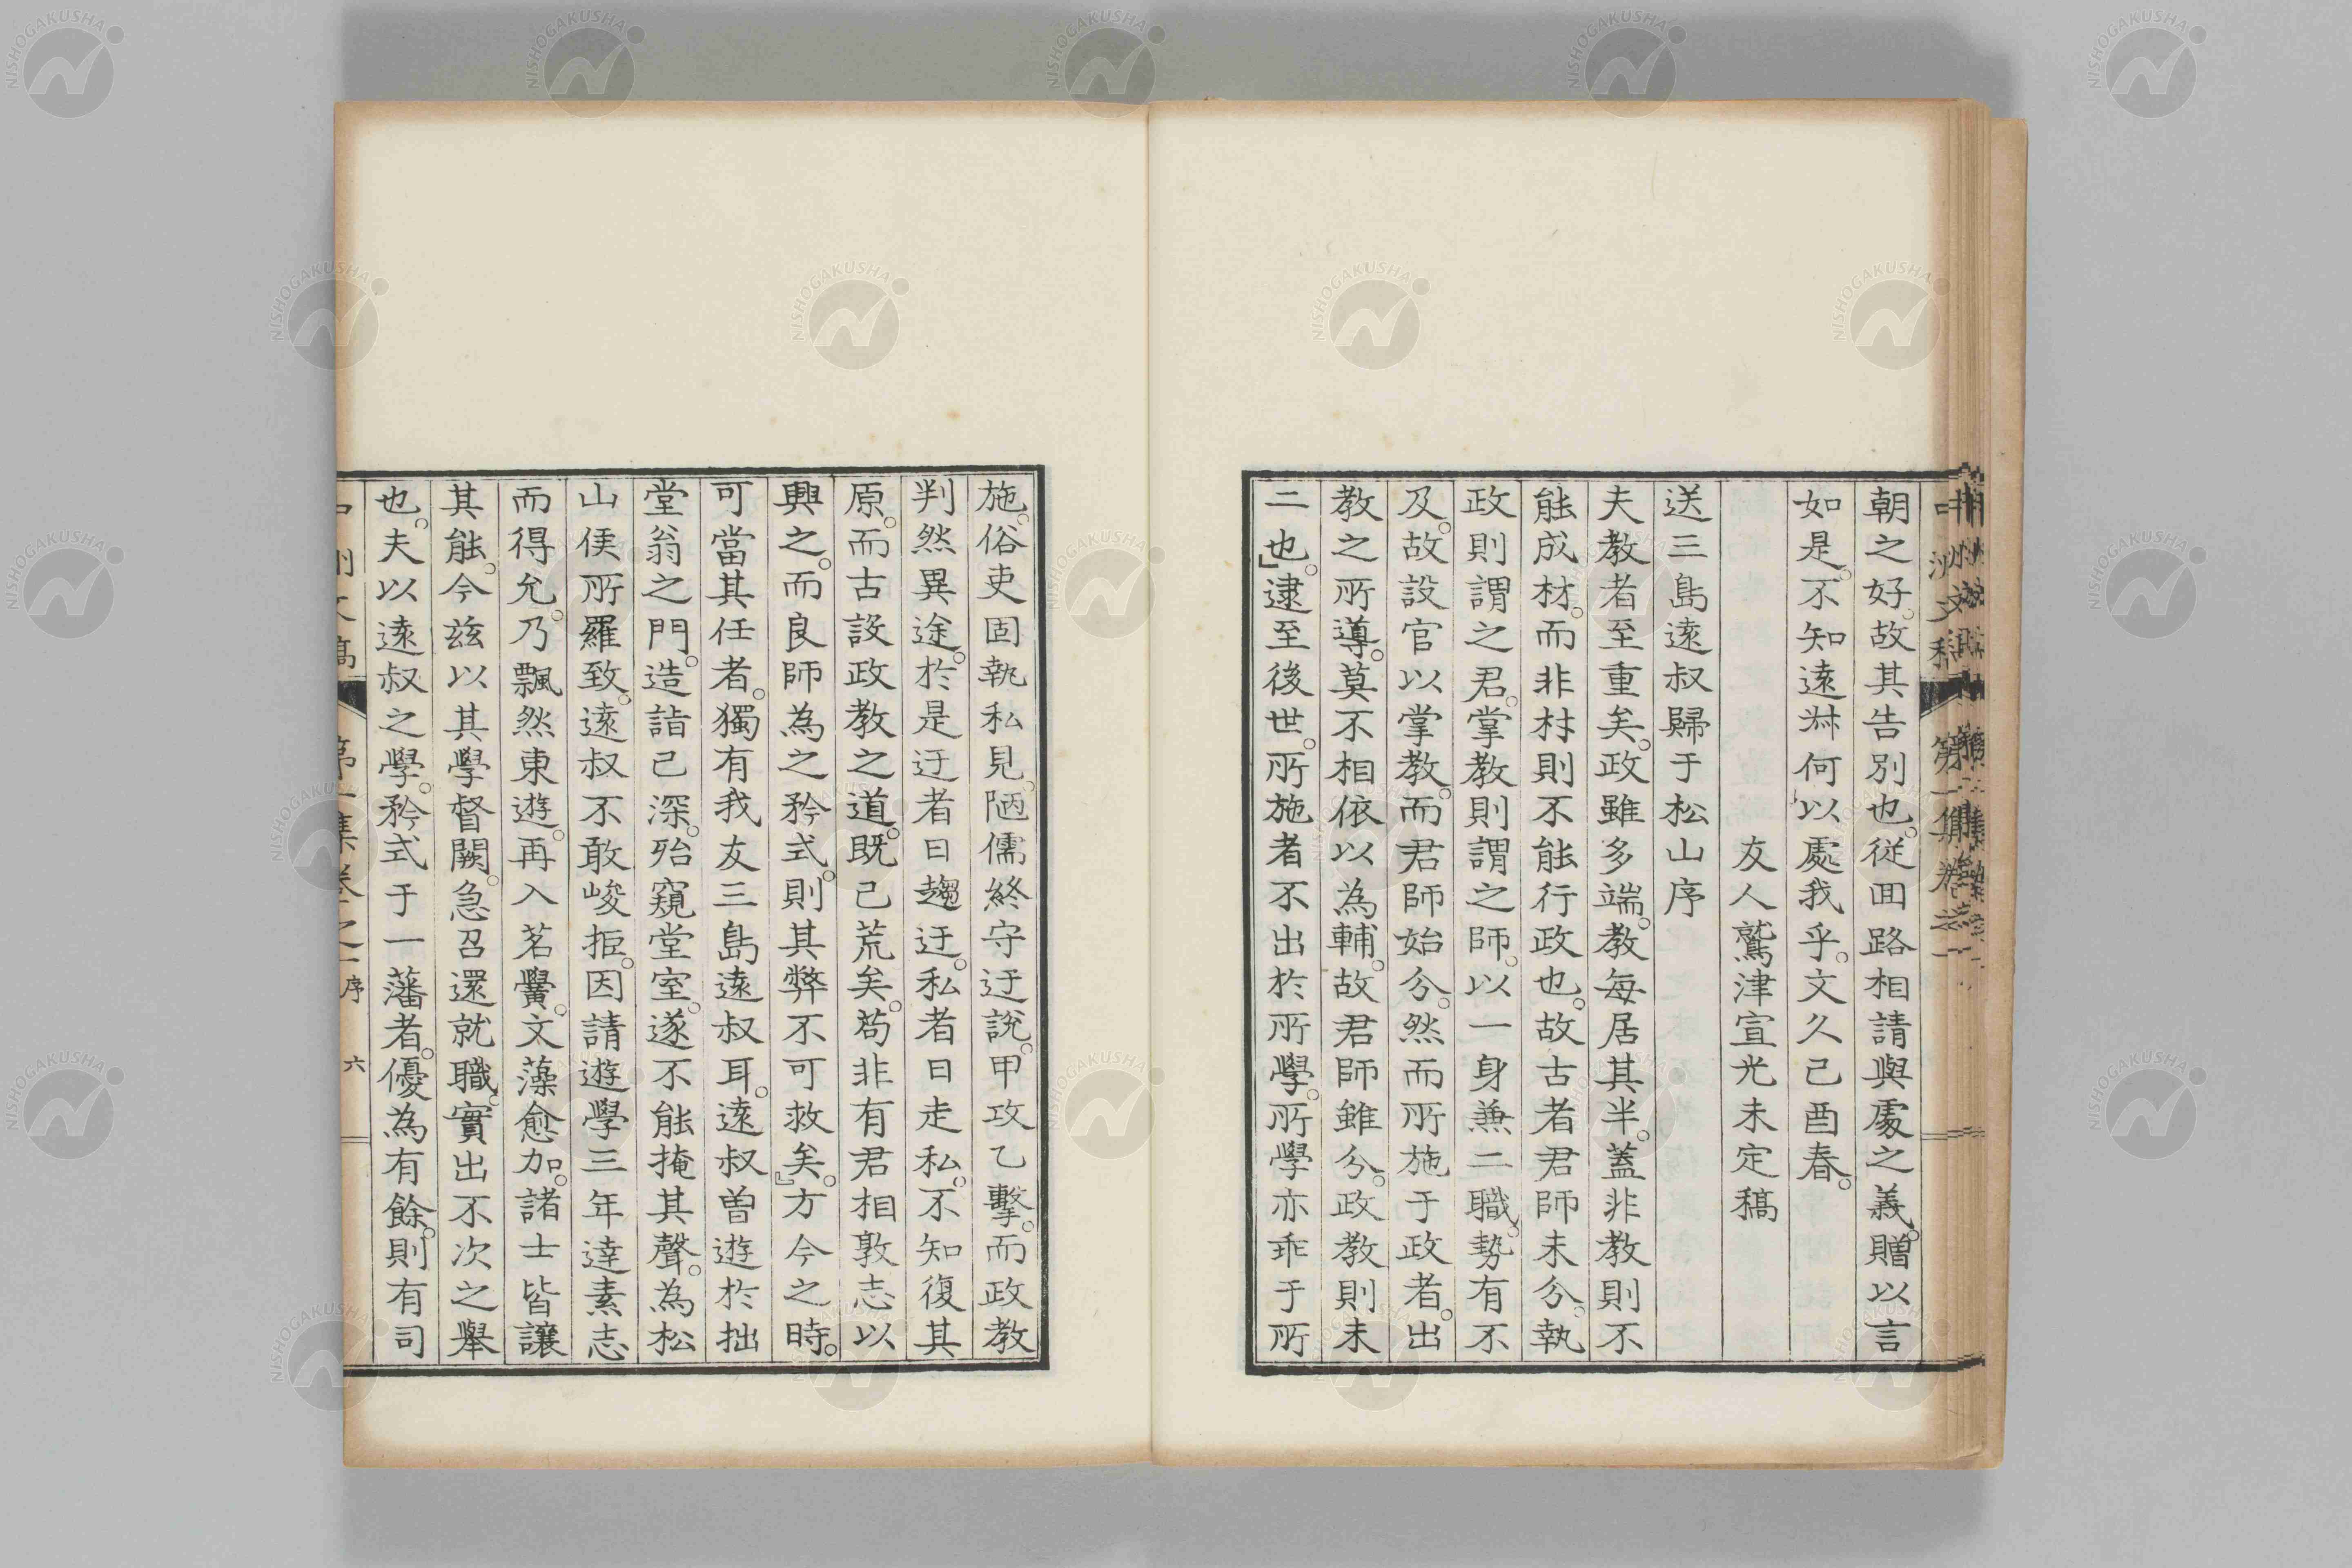 朝之好。故其告別也。從囬路相請與處之義。贈以言
如是。不知遠叔何以處我乎。文久己酉春。
友人鷲津宣光未定稿
送三島遠叔歸于松山序
夫教者至重矣。政雖多端。教每居其半。蓋非教則不
能成材。而非材則不能行政也。故古者君師未分。執
政則謂之君。掌教則謂之師。以一身兼二職。勢有不
及。故設官以掌教。而君師始分。然而所施于政者。出
教之所導。莫不相依以為輔。故君師雖分。政教則未
二也。」逮至後世。所施者不出於所學。所學亦乖于所
施。俗吏固執私見。陋儒終守迂説。甲攻乙擊。而政教
判然異途。於是迂者日趨迂。私者日走私。不知復其
原。而古設政教之道。既已荒矣。苟非有君相敦志以
興之。而良師為之矜式。則其弊不可救矣。」方今之時。
可當其任者。獨有我友三島遠叔耳。遠叔曽遊於拙
堂翁之門。造詣已深。殆窺堂室。遂不能掩其聲。為松
山侯所羅致。遠叔不敢峻拒。因請遊學三年達素志
而得允。乃飄然東遊。再入茗黌。文藻愈加。諸士皆讓
其能。今茲以其學督闕。急召還就職。實出不次之舉
也。夫以遠叔之學。矜式于一藩者。優為有餘。則有司
序
六
NISHOGAKUSHA